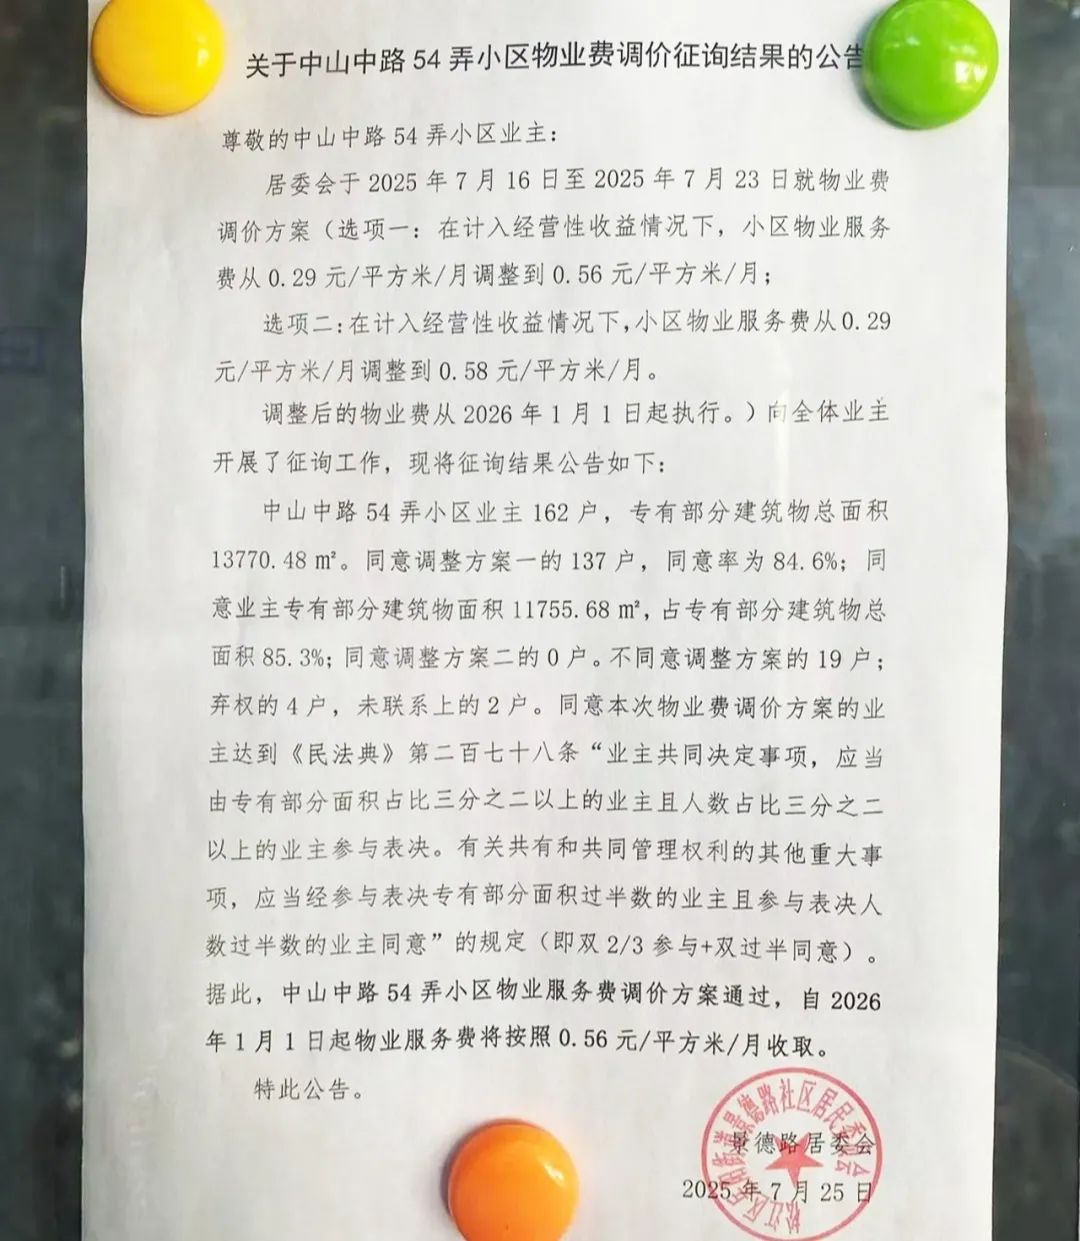 关于中山中路 54 弄小区物业费调价征询结果的公告
尊敬的中山中路 54 弄小区业主：
居委会于 2025 年 7 月 16 日至 2025 年 7 月 23 日就物业费
调价方案（选项一：在计入经营性收益情况下，小区物业服务
费从 0.29 元/平方米/月调整到 0.56 元/平方米/月；
选项二：在计入经营性收益情况下，小区物业服务费从 0.29
元/平方米/月调整到 0.58 元/平方米/月。
调整后的物业费从 2026 年 1 月 1 日起执行。）向全体业主
开展了征询工作，现将征询结果公告如下：
中山中路 54 弄小区业主 162 户，专有部分建筑物总面积
13770.48 ㎡。同意调整方案一的 137 户，同意率为 84.6%；同
意业主专有部分建筑物面积 11755.68 ㎡，占专有部分建筑物总
面积 85.3%；同意调整方案二的 0 户。不同意调整方案的 19 户；
弃权的 4 户，未联系上的 2 户。同意本次物业费调价方案的业
主达到《民法典》第二百七十八条“业主共同决定事项，应当
由专有部分面积占比三分之二以上的业主且人数占比三分之二
以上的业主参与表决。有关共有和共同管理权利的其他重大事
项，应当经参与表决专有部分面积过半数的业主且参与表决人
数过半数的业主同意”的规定（即双 2/3 参与+双过半同意）。
据此，中山中路 54 弄小区物业服务费调价方案通过，自 2026
年 1 月 1 日起物业服务费将按照 0.56 元/平方米/月收取。
特此公告。
景德路居委会
2025 年 7 月 25 日
景德路社区居民委员会